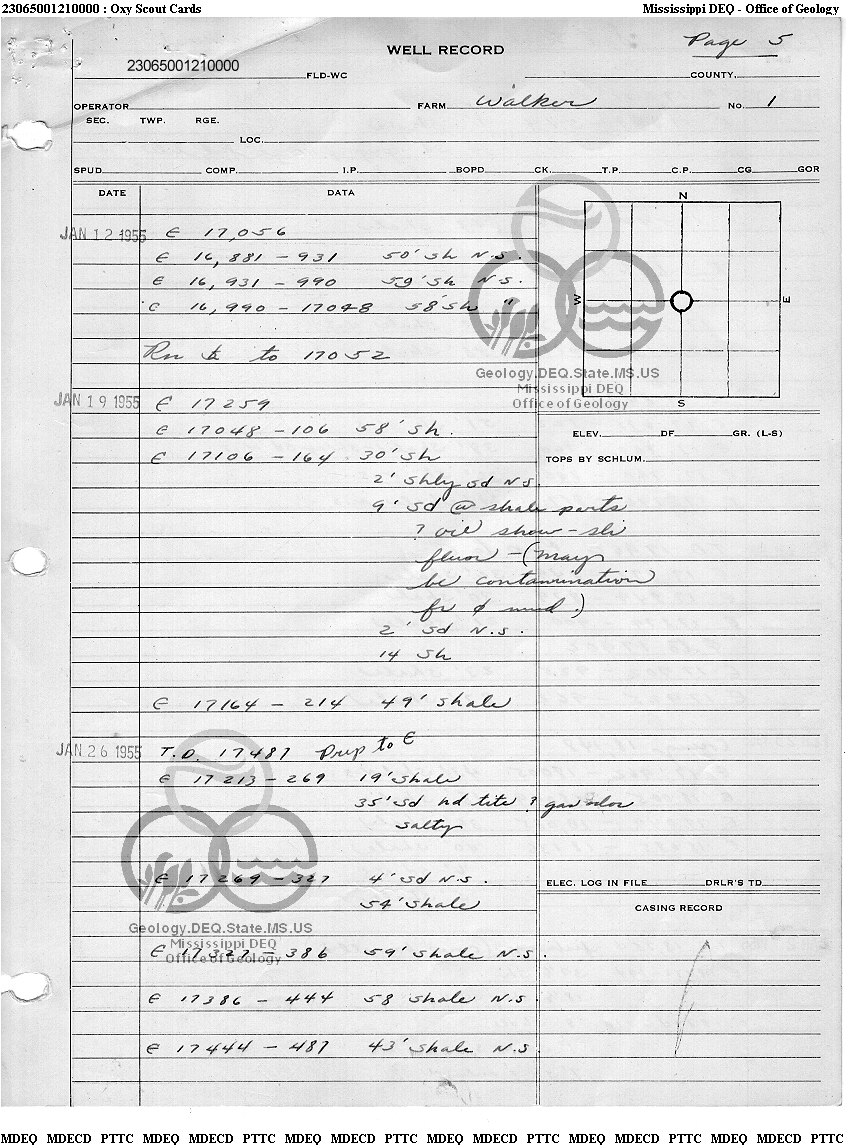 23065001210000 : Oxy Scout Cards Mississippi DEQ - Office of Geology
Page 5
WELL RECORD
23065001210000 FLD-WC COUNTY
OPERATOR FARM Walker No. 1
SEC. TWP. RGE.
LOC.
SPUD COMP. I.P. BOPD CK. T.P. C.P. CG GOR
DATE DATA
N
W
E
S
JAN 12 1955 C 17,056
C 16,881 - 931 50' sh N.S.
C 16,931 - 990 59' sh N.S.
C 16,990 - 17048 58' sh "
Rn to 17052
Geology.DEQ.State.MS.US
Mississippi DEQ
Office of Geology
JAN 19 1955 C 17259
C 17048 - 106 58' sh.
C 17106 - 164 30' sh
2' shly sd N.S.
9' sd @ shale parts
? oil show - sli
fluor - (may
be contamination
fr ¢ mud.)
2' sd N.S.
14 sh
ELEV. DF GR. (L-S)
TOPS BY SCHLUM.
C 17164 - 214 49' shale
JAN 26 1955 T.D. 17487 Prep to C
C 17213 - 269 19' shale
35' sd hd tite ? gas odor
salty
C 17269 - 327 4' sd N.S.
54' shale
ELEC. LOG IN FILE DRLR'S TD
CASING RECORD
Geology.DEQ.State.MS.US
Mississippi DEQ
Office of Geology
C 17327 - 386 59' shale N.S.
C 17386 - 444 58 shale N.S.
C 17444 - 487 43' shale N.S.
MDEQ MDECD PTTC MDEQ MDECD PTTC MDEQ MDECD PTTC MDEQ MDECD PTTC MDEQ MDECD PTTC MDEQ MDECD PTTC